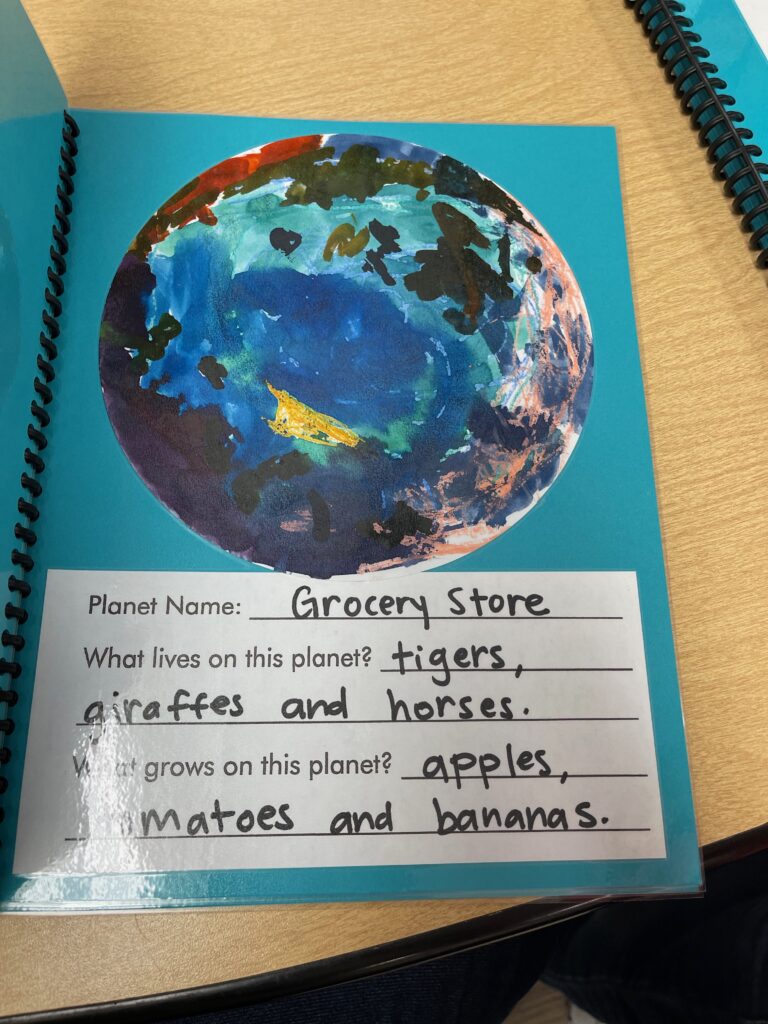 Planet Name: Grocery Store
What lives on this planet? tigers,
giraffes and horses.
What grows on this planet? apples,
tomatoes and bananas.